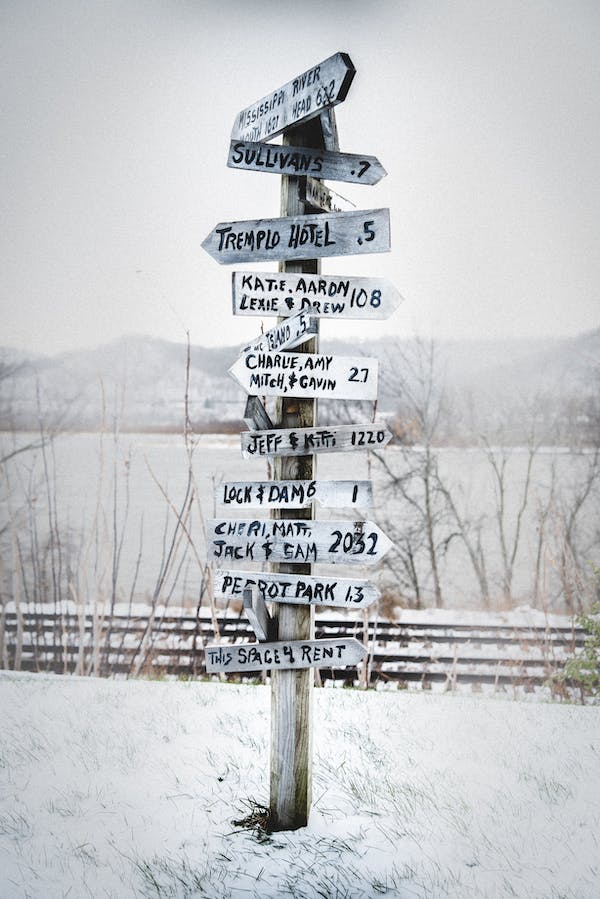 MISSISSIPPI RIVER
MOUTH 1621 HEAD 632
SULLIVANS .7
TREMPLO HOTEL .5
KATE, AARON
LEXIE & DREW 108
ISLAND .5
CHARLIE, AMY
MITCH, & GAVIN 27
JEFF & KITTI 1220
LOCK & DAM 6 1
CHERI, MATT,
JACK & SAM 2032
PERROT PARK 1.3
THIS SPACE 4 RENT